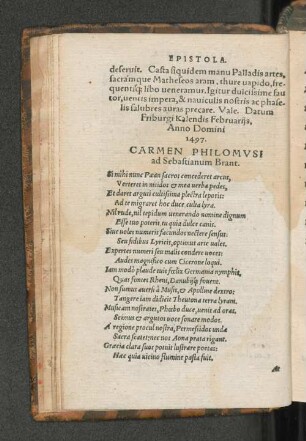 EPISTOLA.
deseruit. Casta siquidem manu Palladis artes,
sacramque Matheseos aram, thure uapido, fre,
quentisq; libo ueneramur. Igitur dulcissime fau
tor, uentis impera, & nauiculis nostris ac phase,
lis salubres auras precare. Vale. Datum
Friburgi Kalendis Februarijs,
Anno Domini
1497.
CARMEN PHILOMVSI
ad Sebastianum Brant.
Si mihi nunc Pæan sacros concederet arcus,
Verteret in nudos & mea uerba pedes,
Et daret arguti cultissima plectra leporis:
Ad te migraret hoc duce culta lyra.
Nil rude, nil tepidum uenerando nomine dignum
Esse tuo poteris tu quia dulce canis.
Siue uelis numeris facundos nectere sensus:
Seu fidibus Lyricis, optime arie uales.
Expertes numeri seu malis condere uoces:
Audes magnifico cum Cicerone loqui.
Iam modo plaude tuis felix Germania nymphis,
Quas fontes Rheni, Danubijq; fouent.
Non sumus auersi à Musis, & Apolline dextro:
Tangere iam didicit Theutona terra lyram.
Musicam nostrates, Phœbo duce, uenit ad oras,
Scimus & argutos uoce sonare modos.
A regione procul nostra, Permessidos undæ
Sacra scatet, nec nos Aona prata rigant.
Græcia clara suos potuit lustrare poetas:
Hæc quia uicino flumine pasta fuit.
At